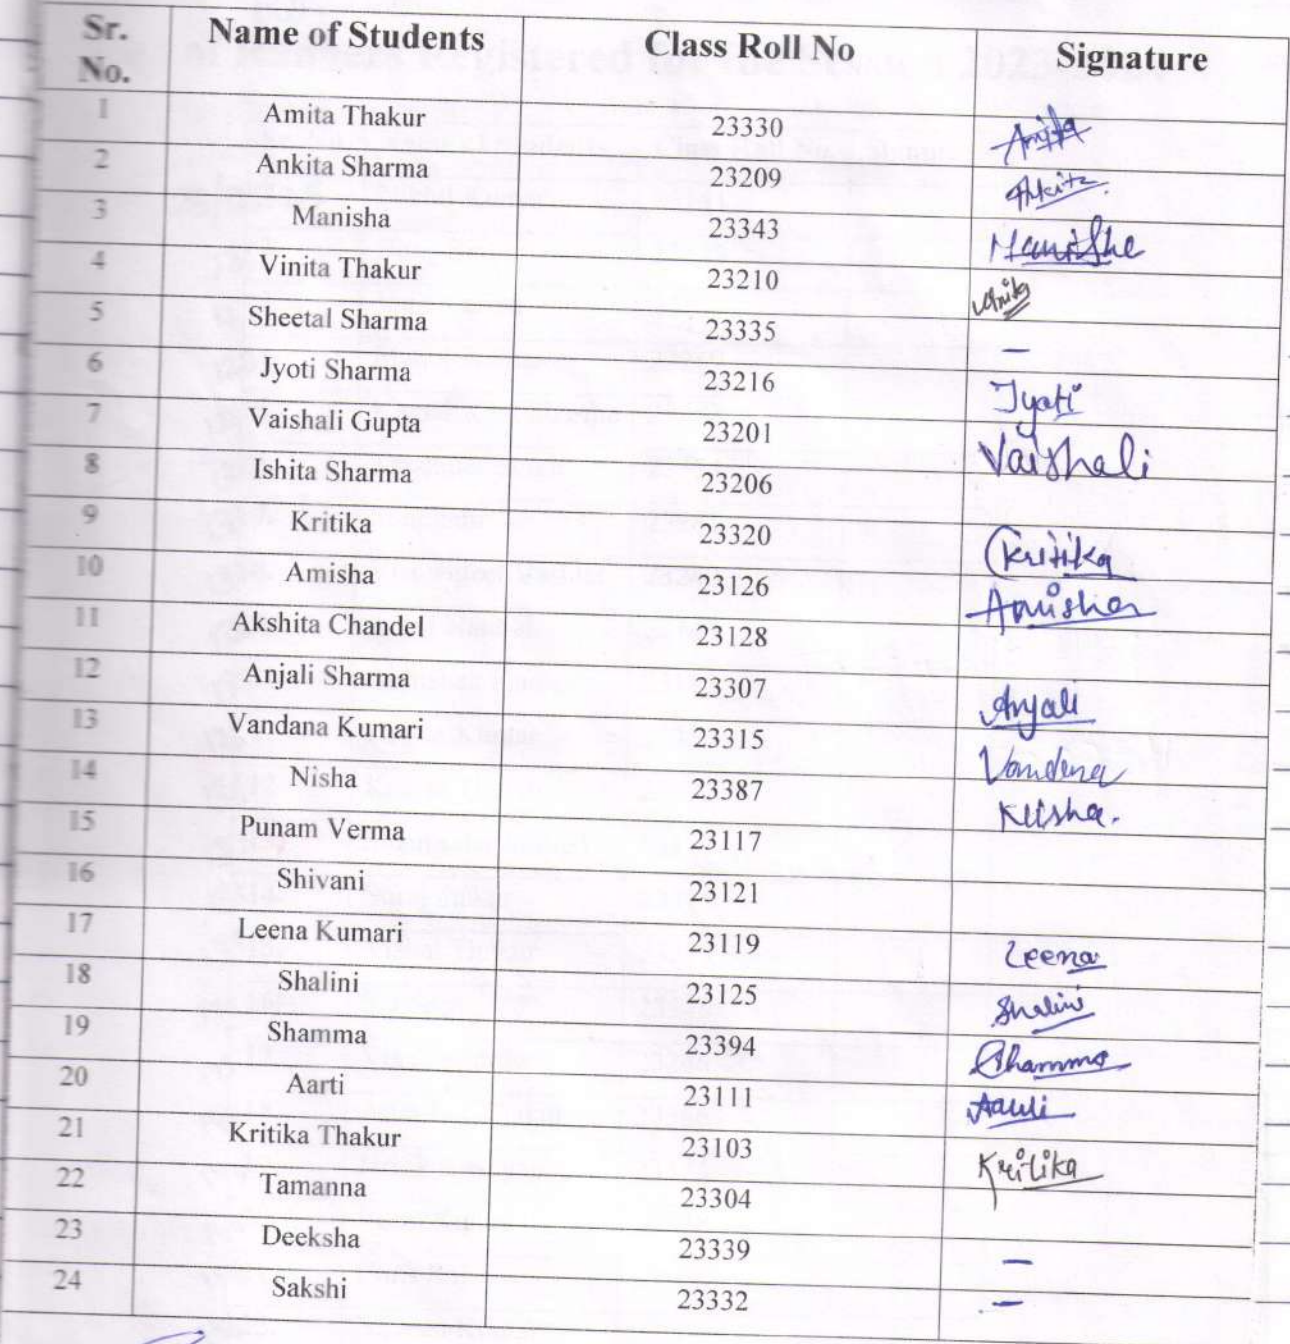 Sr. No. Name of Students Class Roll No Signature
1 Amita Thakur 23330 Amita
2 Ankita Sharma 23209 Ankita
3 Manisha 23343 Manisha
4 Vinita Thakur 23210
5 Sheetal Sharma 23335 –
6 Jyoti Sharma 23216 Jyoti
7 Vaishali Gupta 23201 Vaishali
8 Ishita Sharma 23206
9 Kritika 23320 Kritika
10 Amisha 23126 Amisha
11 Akshita Chandel 23128
12 Anjali Sharma 23307 Anjali
13 Vandana Kumari 23315 Vandana
14 Nisha 23387 Nisha.
15 Punam Verma 23117
16 Shivani 23121
17 Leena Kumari 23119 Leena
18 Shalini 23125 Shalini
19 Shamma 23394 Shamma
20 Aarti 23111 Aarti
21 Kritika Thakur 23103 Kritika
22 Tamanna 23304
23 Deeksha 23339 –
24 Sakshi 23332 –